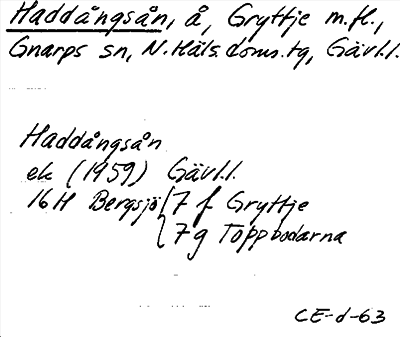 Haddångsån, å, Gryttje m.fl.,
Gnarps sn, N. Häls. doms. tg, Gävl.l.
Haddångsån
ek (1959) Gävl.l.
16H Bergsjö 7 f Gryttje
7 g Toppbodarna
CE-d-63